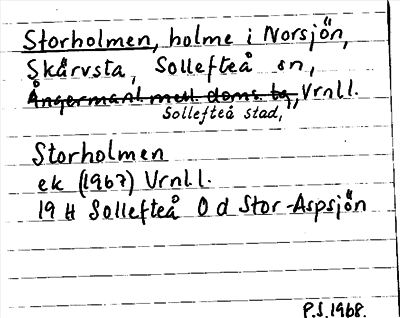 Storholmen, holme i Norsjön,
Skärvsta, Sollefteå sn,
Ångermanl. mell. doms. tg, Vrnl l.
Sollefteå stad,
Storholmen
ek (1967) Vrnl l.
19 H Sollefteå 0 d Stor-Aspsjön
P.S. 1968.